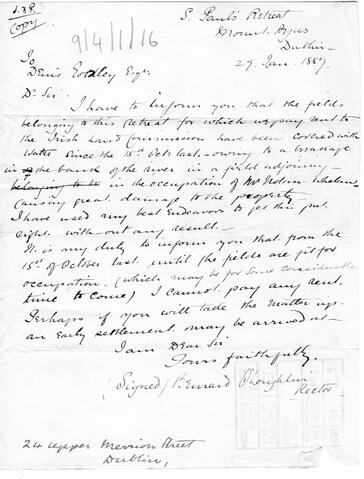 J.X.P.
Copy
9/4/1/16
S. Paul's Retreat
Mount Argus
Dublin
29. Jan. 1887.
To
Denis Godley Esqr.
Dr. Sir.
I have to inform you that the fields
belonging to this Retreat for which we pay rent to
the Irish Land Commission have been covered with
water since the 15th Octr. last - owing to a breakage
in the bank of the river in a field adjoining -
belonging to in the occupation of Mr Nolan Whelan
causing great damage to the property
I have used my best Endeavors to get this put
right with-out any result -
It is my duty to inform you that from the
15th of October last until the fields are fit for
occupation. (which may be for some considerable
time to come) I cannot pay any rent.
Perhaps if you will take the matter up.
an early settlement may be arrived at -
I am Dear Sir
Yours faithfully.
(Signed) Bernard O'Loughlin
Rector
24 Upper Merrion Street
Dublin,